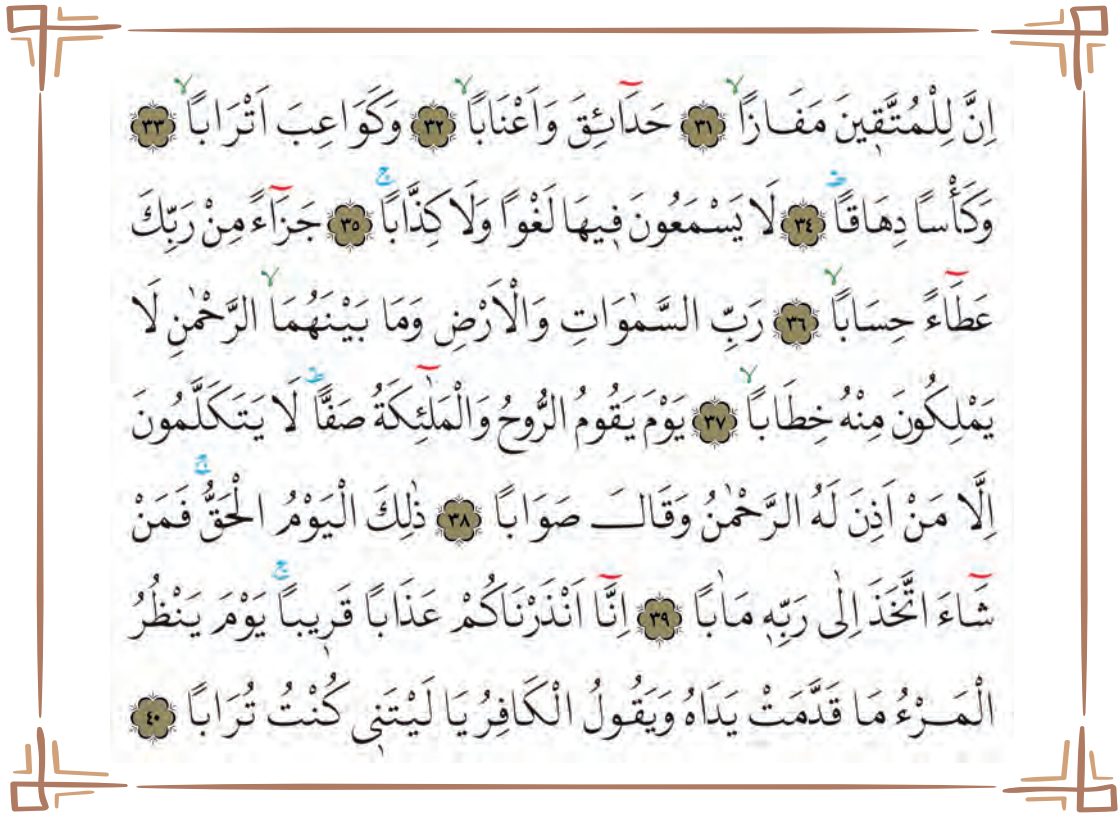 اِنَّ لِلْمُتَّقٖينَ مَفَازاًۙ ﴿٣١﴾ حَدَٓائِقَ وَاَعْنَاباًۙ ﴿٣٢﴾ وَكَوَاعِبَ اَتْرَاباًۙ ﴿٣٣﴾
وَكَأْساً دِهَاقاًؕ ﴿٣٤﴾ لَا يَسْمَعُونَ فٖيهَا لَغْواً وَلَا كِذَّاباًۚ ﴿٣٥﴾ جَزَٓاءً مِنْ رَبِّكَ
عَطَٓاءً حِسَاباًۙ ﴿٣٦﴾ رَبِّ السَّمٰوَاتِ وَالْاَرْضِ وَمَا بَيْنَهُمَاۙ الرَّحْمٰنِ لَا
يَمْلِكُونَ مِنْهُ خِطَاباًۙ ﴿٣٧﴾ يَوْمَ يَقُومُ الرُّوحُ وَالْمَلٰٓئِكَةُ صَفاًّؕ لَا يَتَكَلَّمُونَ
اِلَّا مَنْ اَذِنَ لَهُ الرَّحْمٰنُ وَقَالَ صَوَاباً ﴿٣٨﴾ ذٰلِكَ الْيَوْمُ الْحَقُّۚ فَمَنْ
شَٓاءَ اتَّخَذَ اِلٰى رَبِّهٖ مَاٰباً ﴿٣٩﴾ اِنَّٓا اَنْذَرْنَاكُمْ عَذَاباً قَرٖيباًۚ يَوْمَ يَنْظُرُ
الْمَرْءُ مَا قَدَّمَتْ يَدَاهُ وَيَقُولُ الْكَافِرُ يَا لَيْتَنٖى كُنْتُ تُرَاباً ﴿٤٠﴾